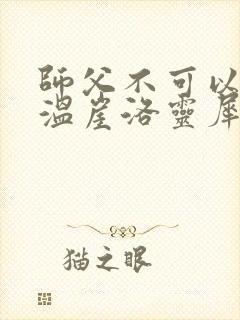 師父不可以
溫崖洛靈犀
猫之眼